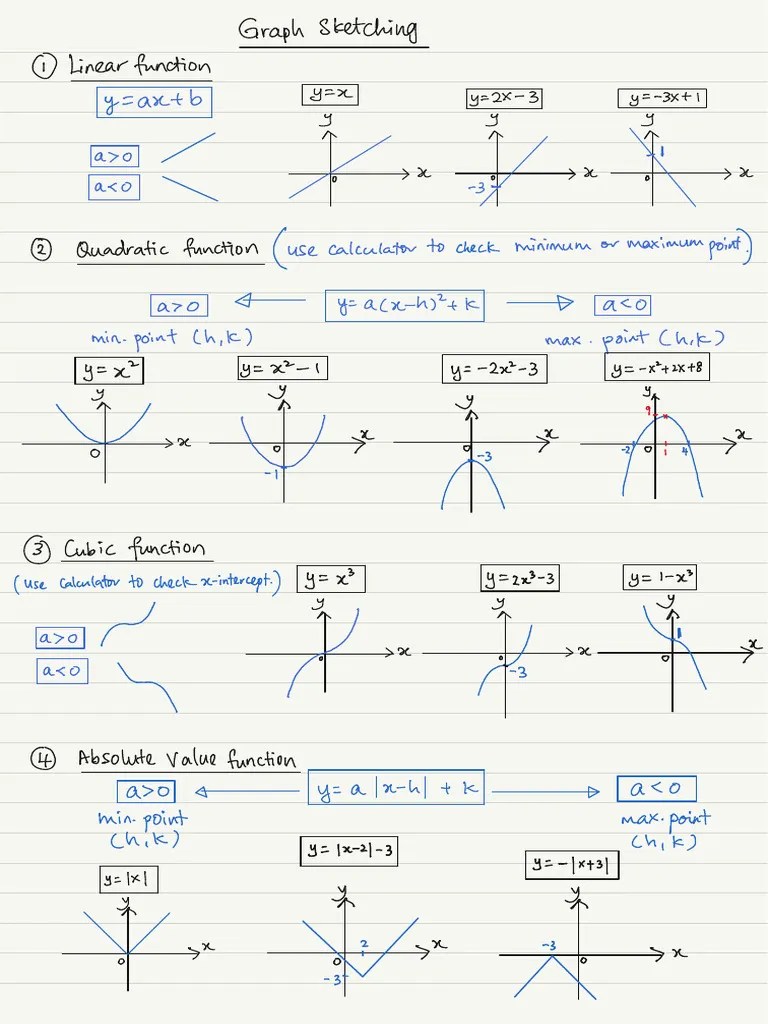 Graph Sketching
① Linear function
y=ax+b
y=x
y=2x-3
y=-3x+1
a>0
a<0
y
x
0
y
x
0
-3
y
x
0
1
② Quadratic function (use calculator to check minimum or maximum point.)
a>0
y=a(x-h)²+k
a<0
min. point (h,k)
max. point (h,k)
y=x²
y=x²-1
y=-2x²-3
y=-x²+2x+8
y
x
0
y
x
0
-1
y
x
0
-3
y
x
9
0
-2
1
4
③ Cubic function
(use calculator to check x-intercept.)
y=x³
y=2x³-3
y=1-x³
a>0
a<0
y
x
0
y
x
0
-3
y
x
0
1
④ Absolute Value function
a>0
y=a|x-h|+k
a<0
min. point
(h,k)
max. point
(h,k)
y=|x|
y=|x-2|-3
y=-|x+3|
y
x
0
y
x
0
2
-3
y
x
0
-3